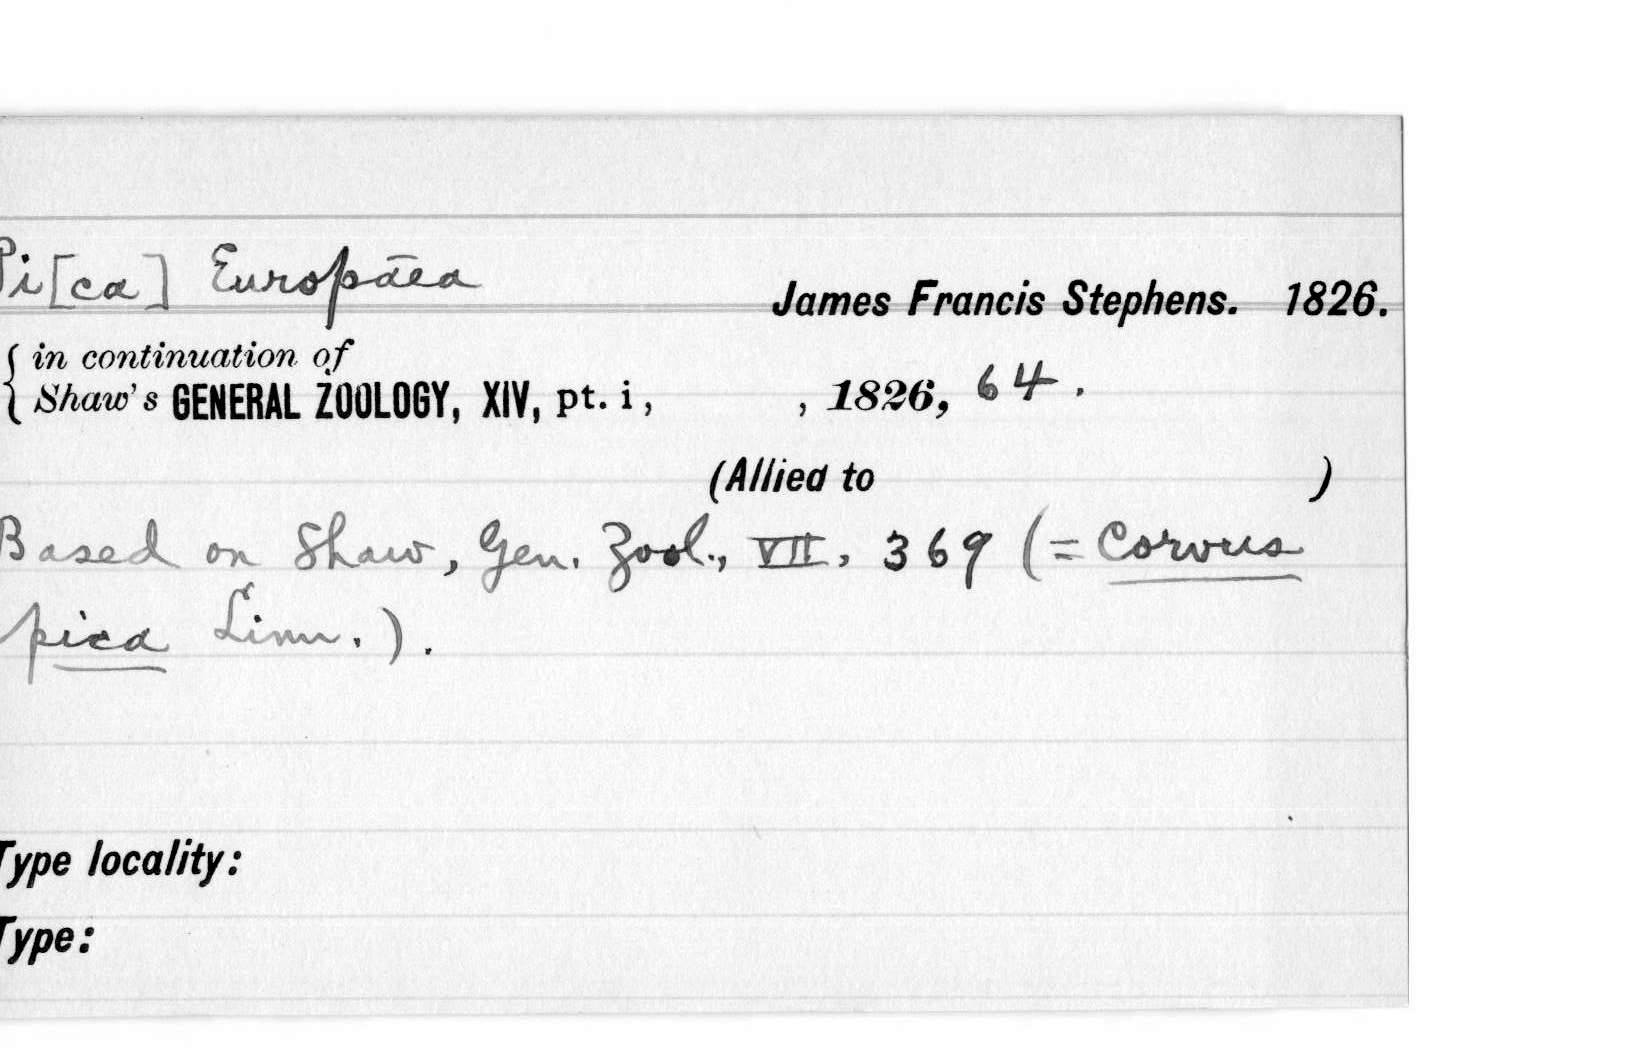 Pi[ca] Europāea
James Francis Stephens. 1826.
in continuation of
Shaw's GENERAL ZOOLOGY, XIV, pt. i, , 1826, 64.
(Allied to )
Based on Shaw, Gen. Zool., VII, 369 (= Corvus
pica Linn.).
Type locality:
Type: